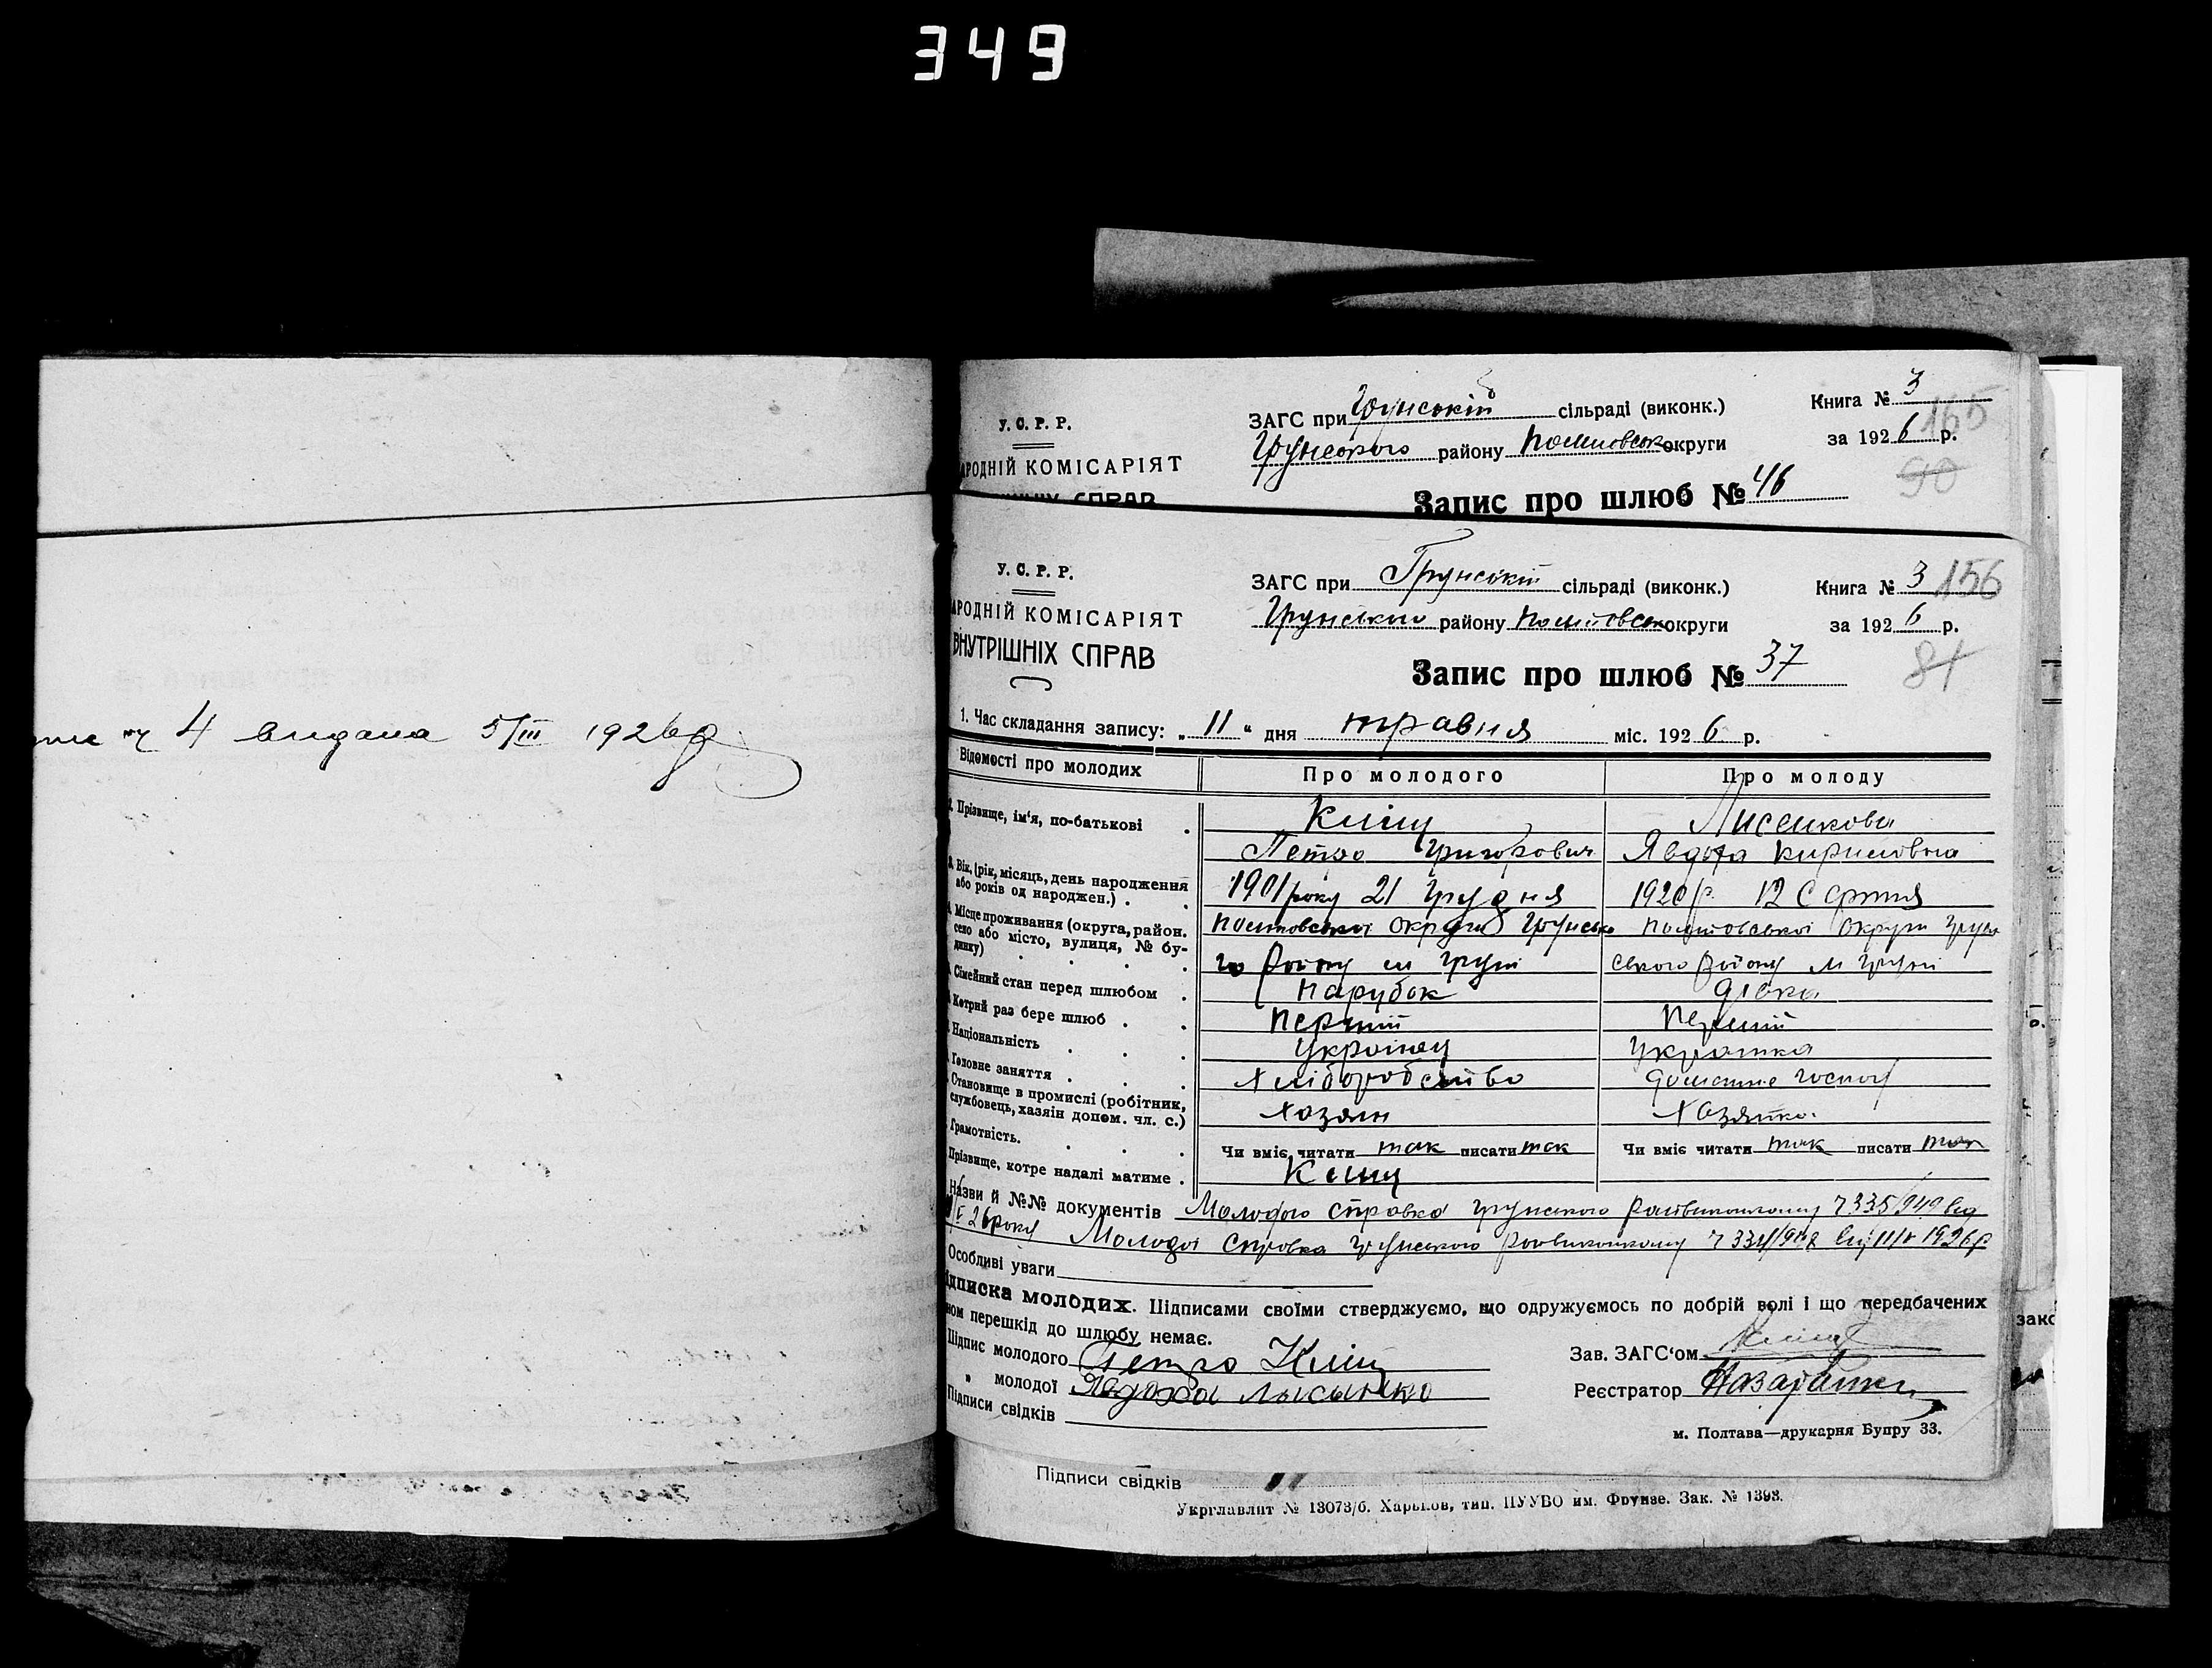 349
У. С. Р. Р.
АРОДНІЙ КОМІСАРІЯТ
ЗАГС при Грунській сільраді (виконк.)
Грунського району Полтовськ округи
Книга № 3
за 1926 р.
165
90
Запис про шлюб № 46
У. С. Р. Р.
АРОДНІЙ КОМІСАРІЯТ
ВНУТРІШНІХ СПРАВ
ЗАГС при Грунській сільраді (виконк.)
Грунського району Полтовськ округи
Книга № 3
156
за 1926 р.
81
Запис про шлюб № 37
ч 4 видана 5/III 1926р
1. Час складання запису: „11“ дня травня міс. 1926 р.
Відомості про молодих Про молодого Про молоду
Прізвище, ім'я, по-батькові Кліщ Лисенкова
Петро Григорович Явдоха Кириловна
Вік, (рік, місяць, день народження або років од народжен.) 1901 року 21 Грудня 1920 р. 12 Серпня
Місце проживання (округа, район. село або місто, вулиця, № будинку) Полтовської округи Грунсько Полтовської Округи Грун
го Району м Груні ського Району м Груні
Сімейний стан перед шлюбом Парубок Дівка
Котрий раз бере шлюб Перший Перший
Національність Українець Українка
Головне заняття Хліборобство домашнє господ
Становище в промислі (робітник, службовець, хазяін допом. чл. с.) Хозяін Хозяйка
Грамотність. Чи вміє читати так писати так Чи вміє читати так писати так
Прізвище, котре надалі матиме Кліщ
Назви й №№ документів Молодого справка Грунського Райвиконкому ч 335/949 від
26 року Молодої Справка Грунського Райвиконкому ч 334/948 від 11/V 1926 р
Особливі уваги
ідписка молодих. Підписами своїми стверджуємо, що одружуємось по добрій волі і що передбачених
ном перешкід до шлюбу немає.
Підпис молодого Петро Кліщ
Зав. ЗАГС'ом
„ молодої Явдоха лысынко
Реєстратор
Підписи свідків
м. Полтава—друкарня Бупру 33.
Підписи свідків
Укрглавлит № 13073/б. Харьков, тип. ПУУВО им. Фрунзе. Зак. № 1393.